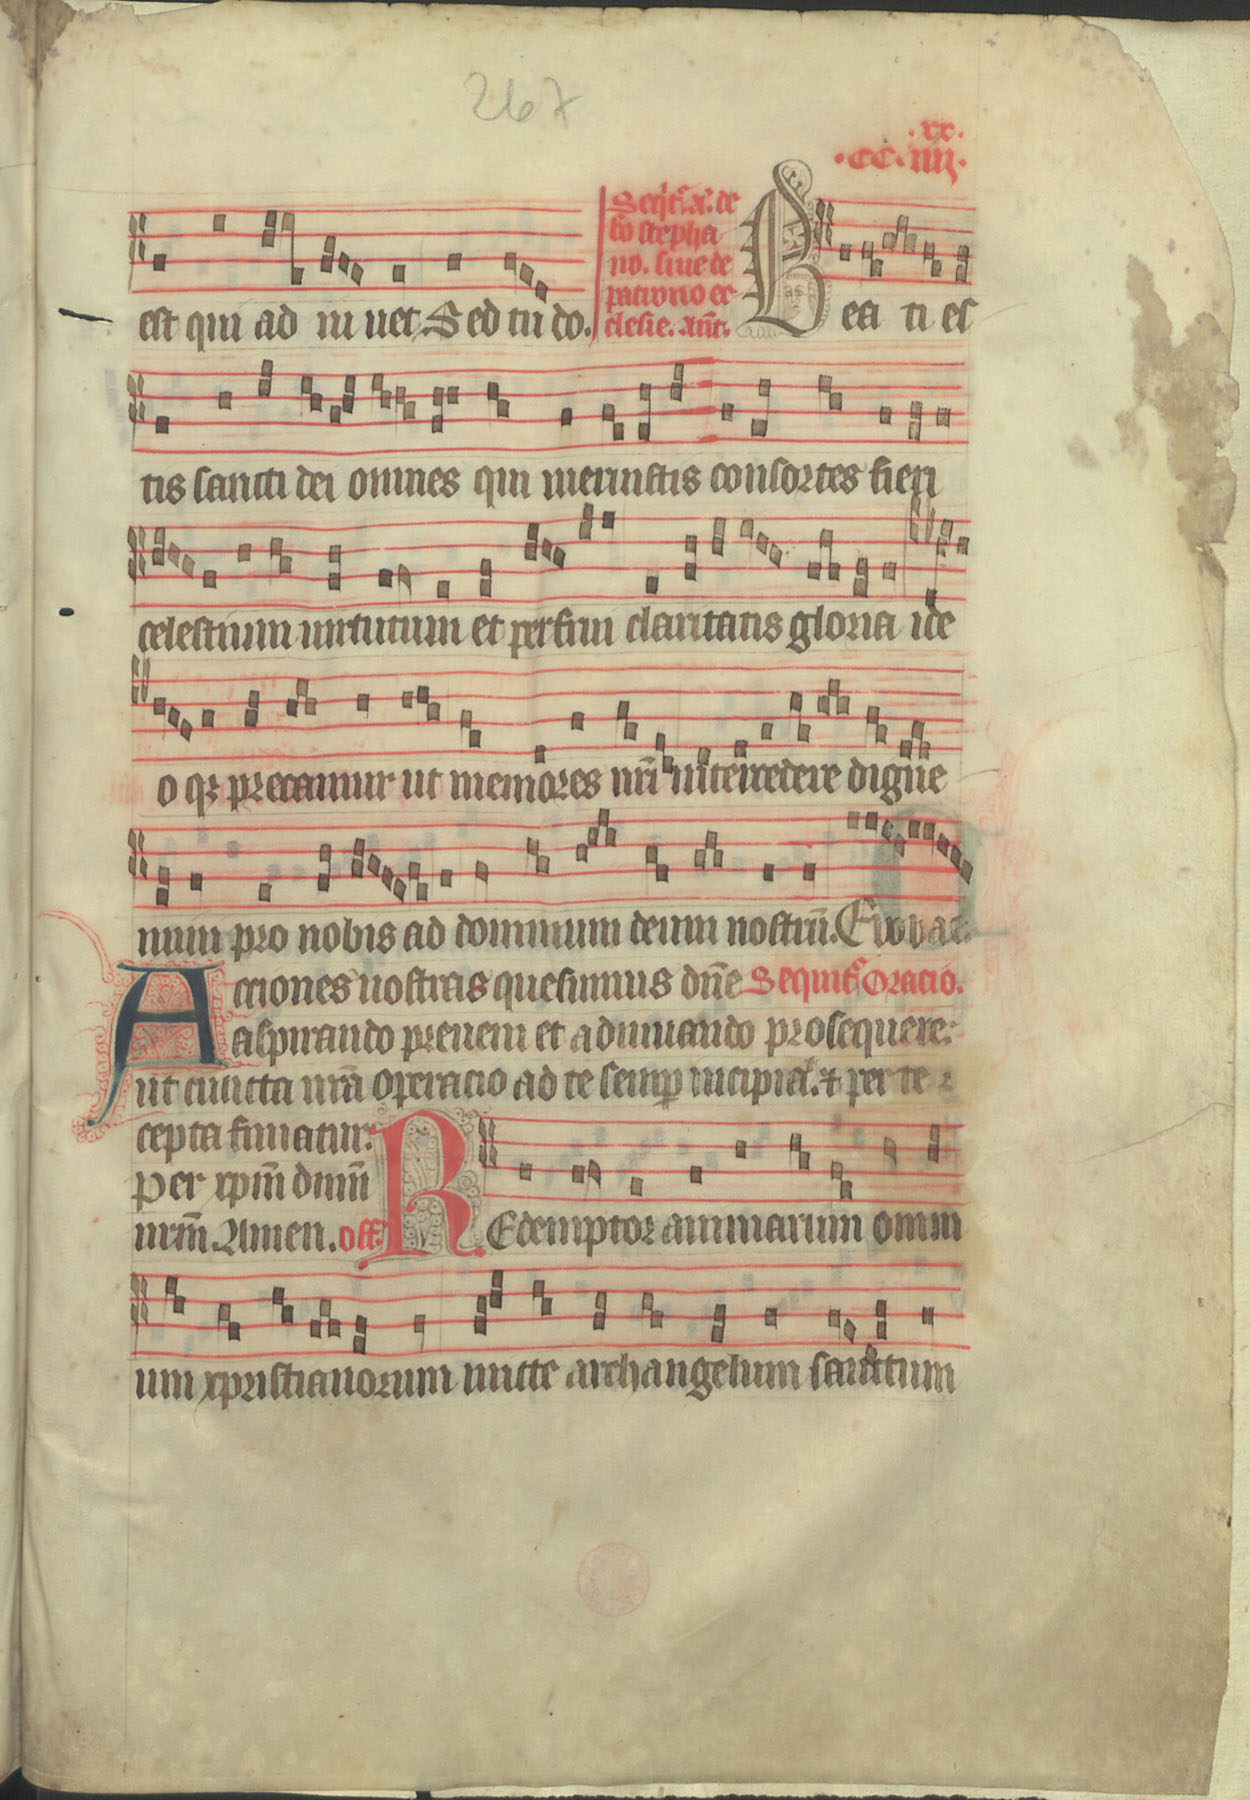 267
.xx.
.CC.iiii.
est qui ad iu uet Sed tu do.
Seqr̄. a. de
sc̄o stepha
no. siue de
patrono ec
clesie. An̄t.
Bea ti es
tis sancti dei omnes qui meruistis consortes fieri
celestium uirtutum et perfrui claritatis gloria ide
o qꝫ precamur ut memores nr̄i intercedere digne
mini pro nobis ad dominum deum nostrū. Evovae.
Acciones nostras quesumus dn̄e Sequitr oracio.
aspirando preueni et adiuuando prosequere:
ut cuncta nr̄a operacio ad te semp̄ incipiat. & per te
cepta finiatur.
Per xpm̄ dnm̄
nrm̄ Amen. off.
REdemptor animarum omni
um xpristianorum mitte archangelum sanctum